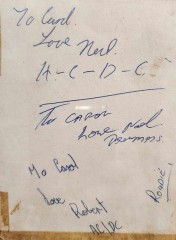 To Carol.
Love Neil.
H-C-D-C
To CAROL
Love Noel
To Carol
love Robert
AC/DC
RONNIE!